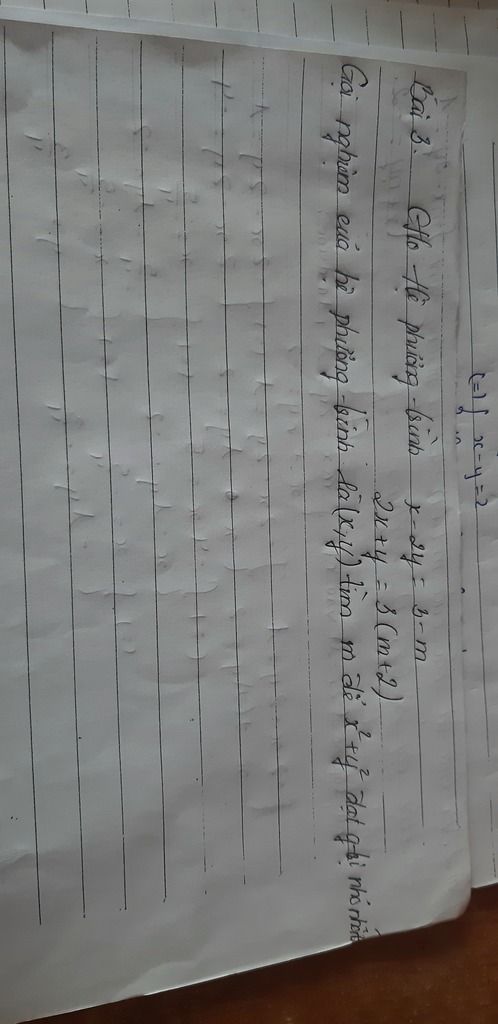 (=) { x-y=2
Bài 3. Cho Hệ phương trình x-2y = 3-m
2x+y = 3(m+2)
Gọi nghiệm của hệ phương trình là (x,y) tìm m để x²+y² đạt g trị nhỏ nhất